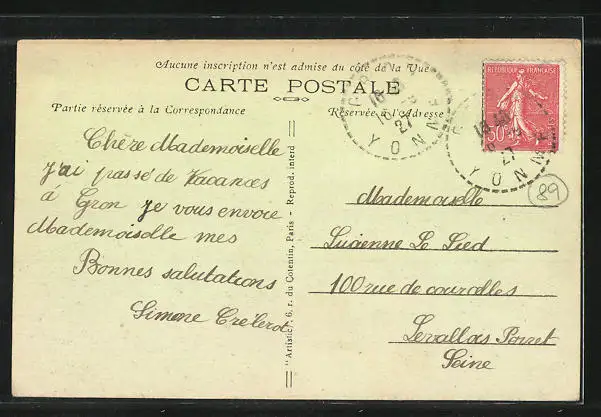 Aucune inscription n'est admise du côté de la Vue
CARTE POSTALE
Partie réservée à la Correspondance
Réservée à l'Adresse
REPUBLIQUE FRANÇAISE
50
16
27
YONNE
18
27
YONNE
89
Chère Mademoiselle
j'ai passé de Vacances
à Gron je vous envoie
Mademoiselle mes
Bonnes salutations
Simone
"Artistic", 6, r. du Cotentin, Paris - Reprod. interd
Mademoiselle
Lucienne Le Lied
100 rue de courcelles
Levallois Perret
Seine